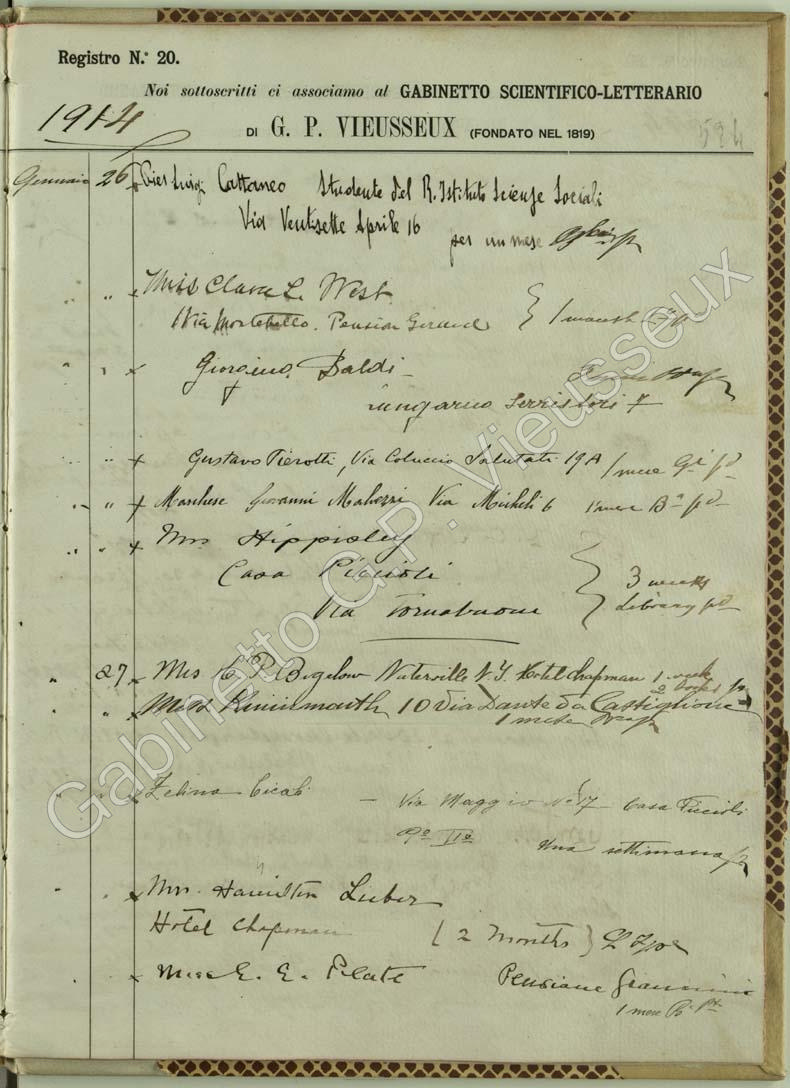 Registro N.° 20.
Noi sottoscritti ci associamo al GABINETTO SCIENTIFICO-LETTERARIO
1914
DI G. P. VIEUSSEUX (FONDATO NEL 1819)
524
Gennaio 26 Pier Luigi Cattaneo Studente del R. Istituto Scienze Sociali
Via Ventisette Aprile 16
per un mese
" Miss Clara L. West
Via Montebello. Pension Girard 1 month
" " Giorgino Baldi
Lungarno Serristori 7
" " Gustavo Pierotti, Via Coluccio Salutati 19A 1 mese
" " Marchese Giovanni Via Micheli 6 1 mese
" " Mrs Hippisley
Casa Piccioli
3 weeks
Via Tornabuoni
Library pd
" 27 Mrs Bigelow N.Y. Hotel Chapman 1 week
2 books
" Miss Kininmonth 10 Via Dante da Castiglione
1 mese
" " Zelina
– Via Maggio No 17 – Casa
Una settimana
" Mrs. Hamilton
Hotel Chapman (2 Months)
" Miss E. E. Pensione
1 mese
Gabinetto G.P. Vieusseux